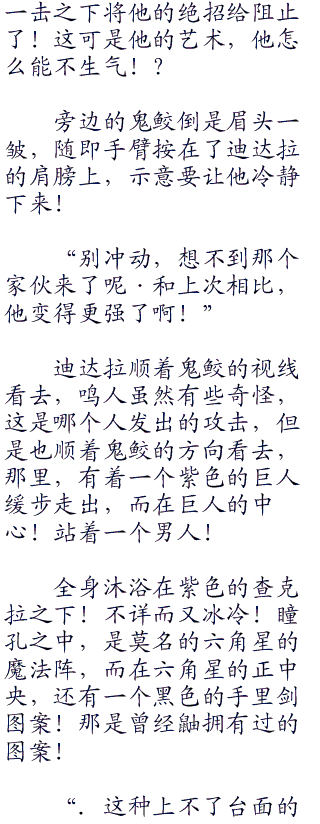 一击之下将他的绝招给阻止
了！这可是他的艺术，他怎
么能不生气！？
旁边的鬼鲛倒是眉头一
皱，随即手臂按在了迪达拉
的肩膀上，示意要让他冷静
下来！
“别冲动，想不到那个
家伙来了呢·和上次相比，
他变得更强了啊！”
迪达拉顺着鬼鲛的视线
看去，鸣人虽然有些奇怪，
这是哪个人发出的攻击，但
是也顺着鬼鲛的方向看去，
那里，有着一个紫色的巨人
缓步走出，而在巨人的中
心！站着一个男人！
全身沐浴在紫色的查克
拉之下！不详而又冰冷！瞳
孔之中，是莫名的六角星的
魔法阵，而在六角星的正中
央，还有一个黑色的手里剑
图案！那是曾经鼬拥有过的
图案！
“．这种上不了台面的